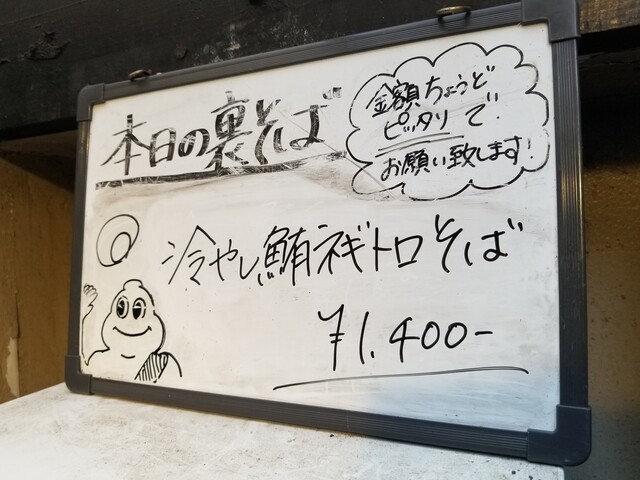 本日の裏そば
金額ちょうど
ピッタリで
お願い致します!
冷やし鮪ネギトロそば
¥1.400-